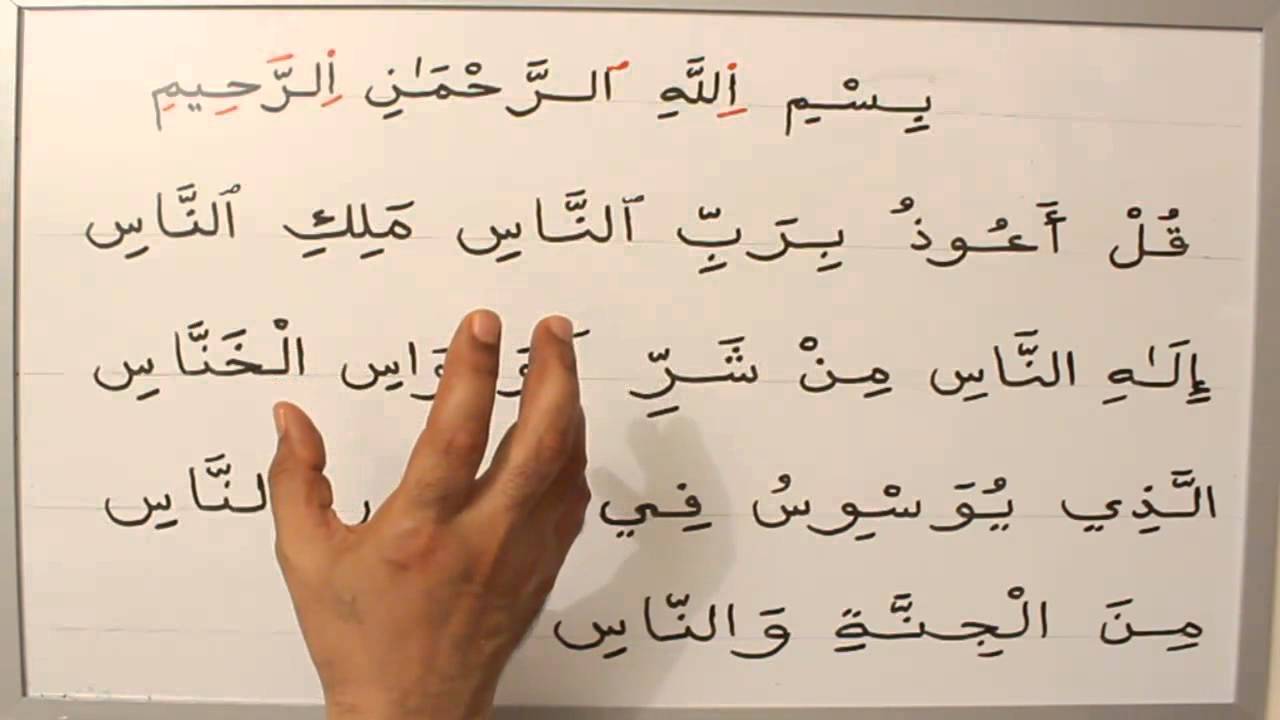 بِسْمِ اِللَّهِ ٱلرَّحْمَـٰنِ اِلرَّحِيمِ
قُلْ أَعُوذُ بِرَبِّ ٱلنَّاسِ مَلِكِ ٱلنَّاسِ
إِلَـٰهِ النَّاسِ مِنْ شَرِّ الْخَنَّاسِ
الَّذِي يُوَسْوِسُ فِي النَّاسِ
مِنَ الْجِنَّةِ وَالنَّاسِ